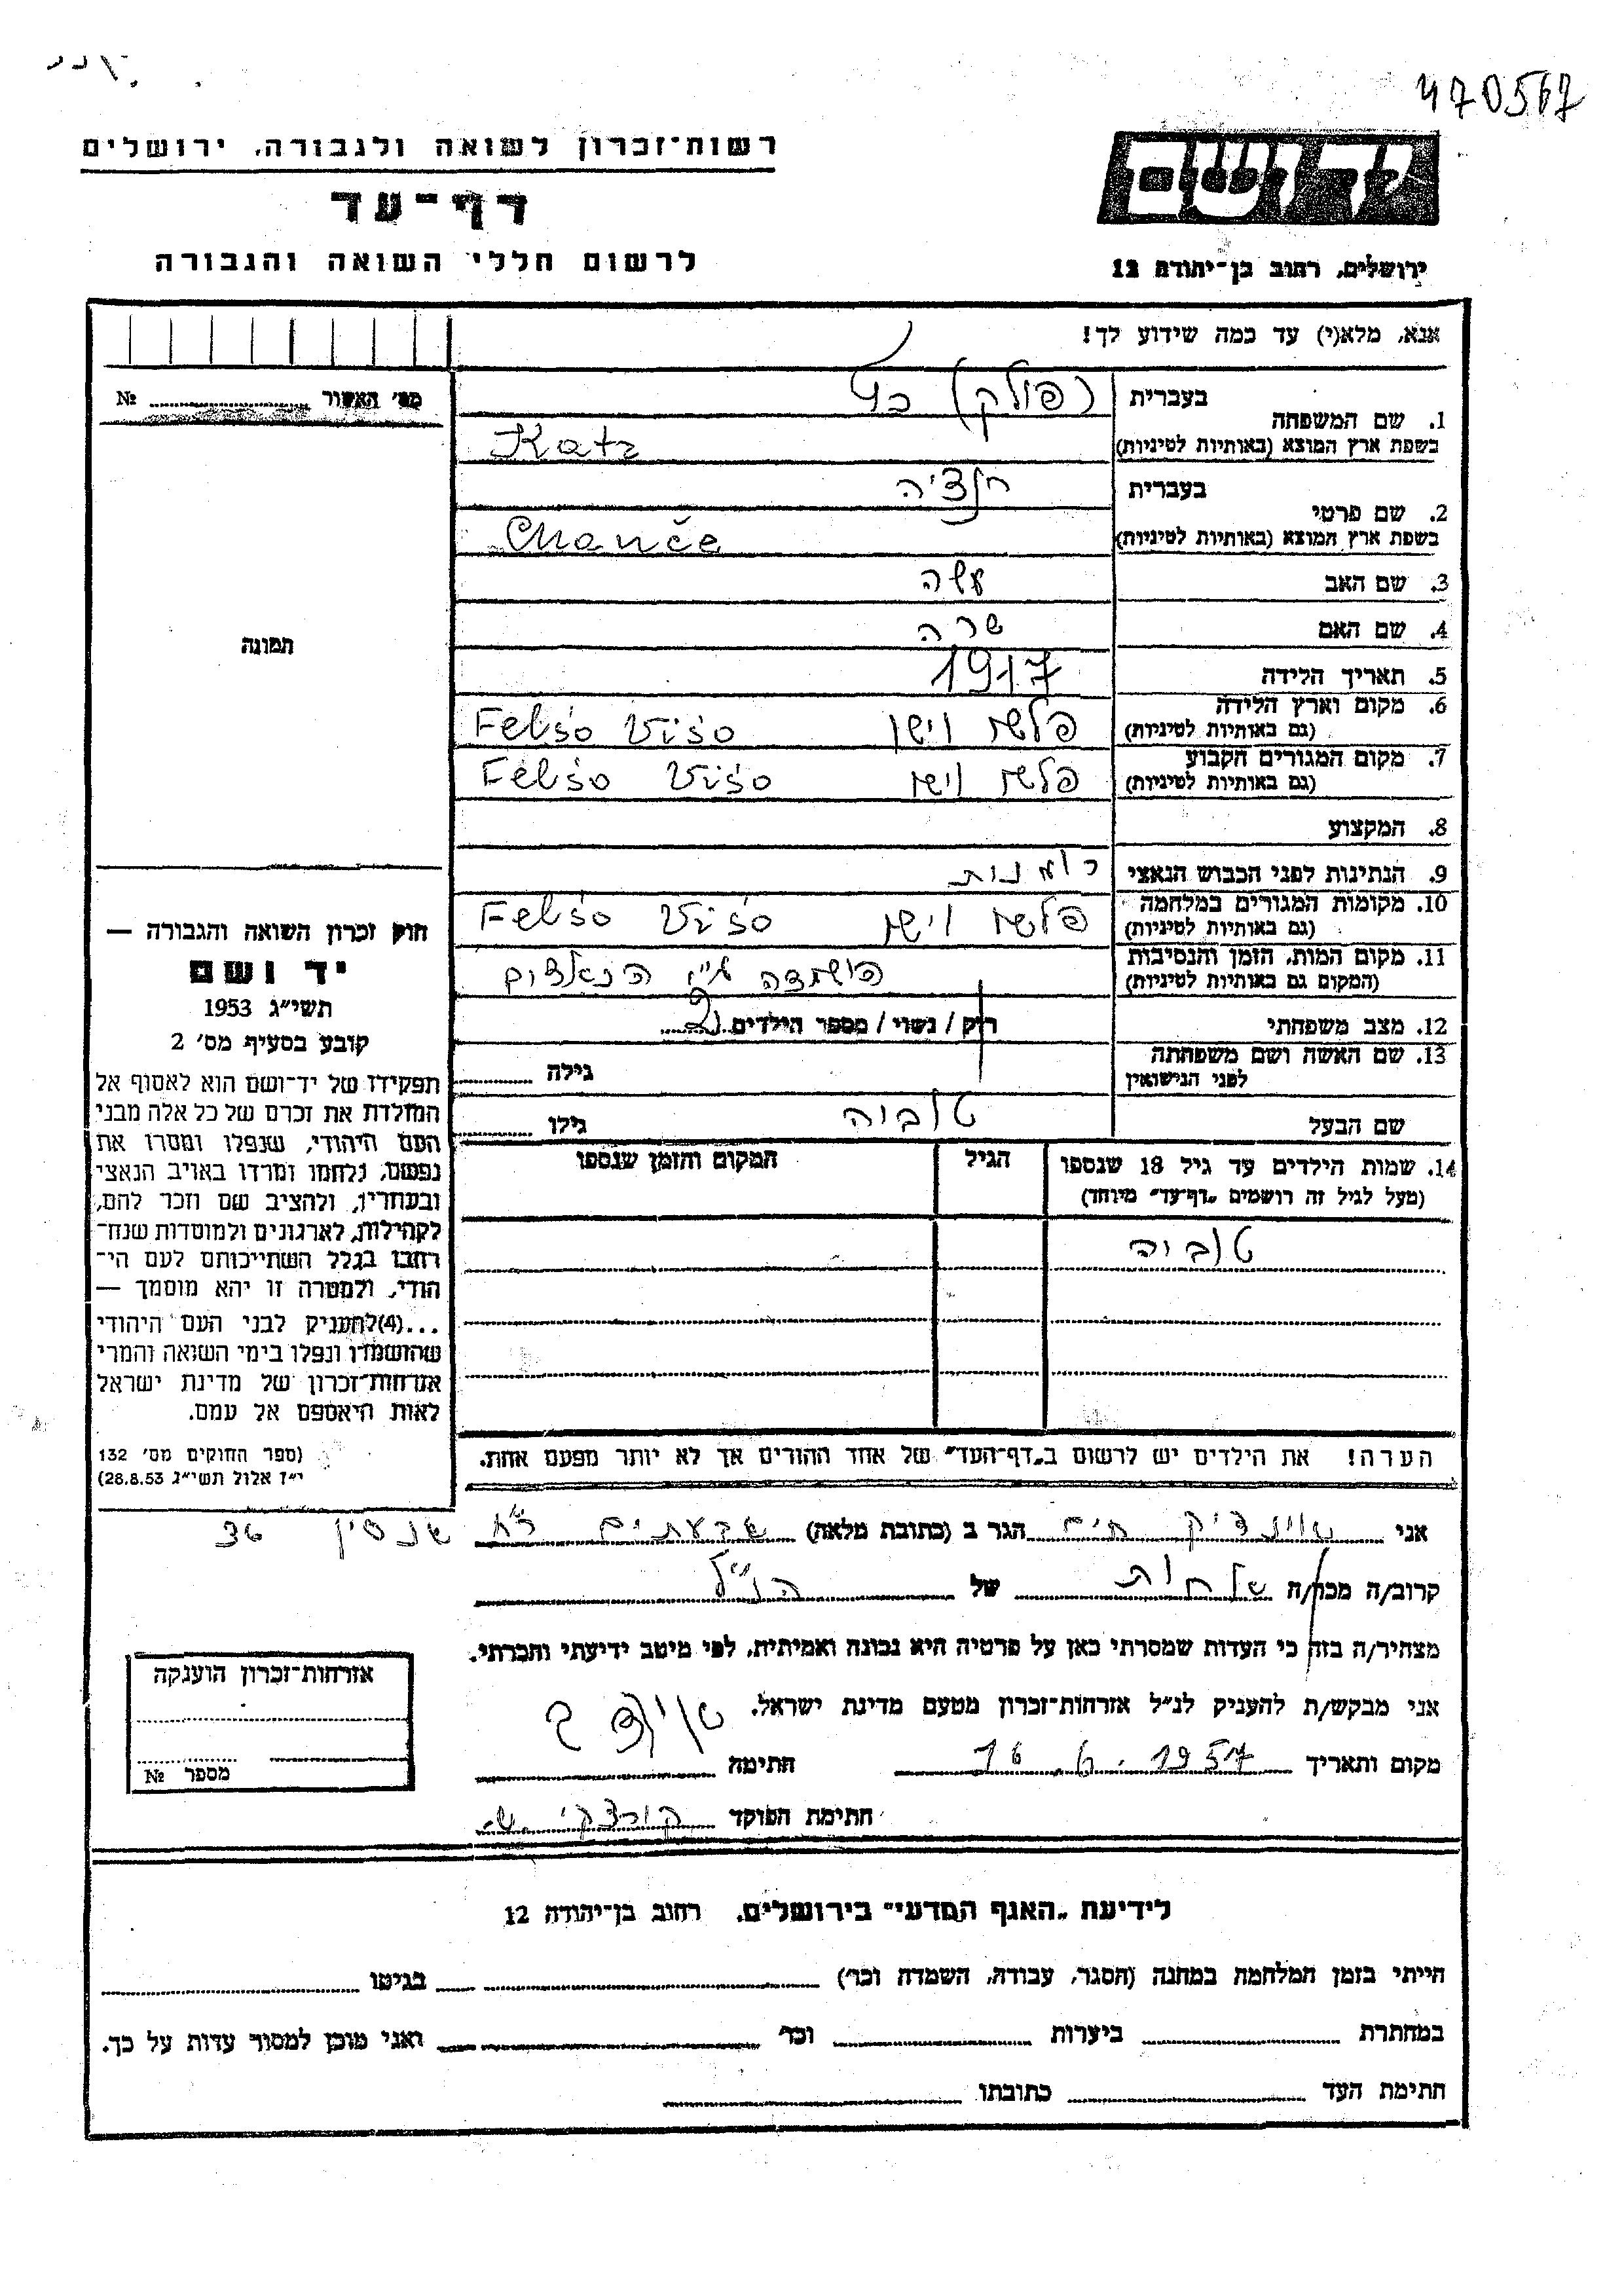 470567
רשות־זכרון לשואה ולגבורה, ירושלים
דף־עד
לרשום חללי השואה והגבורה
ידושם
ירושלים, רחוב בן־יהודה 12
אנא, מלא(י) עד כמה שידוע לך!
מס׳ האשור № 
תמונה
1. שם המשפחה
בעברית (פולק) כץ
בשפת ארץ המוצא (באותיות לטיניות) Katz
2. שם פרטי
בעברית חנציה
בשפת ארץ המוצא (באותיות לטיניות) Chanče
3. שם האב
4. שם האם שרה
5. תאריך הלידה 1917
6. מקום וארץ הלידה
(גם באותיות לטיניות) פלשו וישו Felšo Višo
7. מקום המגורים הקבוע
(גם באותיות לטיניות) פלשו וישו Felšo Višo
8. המקצוע
9. הנתינות לפני הכבוש הנאצי
10. מקומות המגורים במלחמה
(גם באותיות לטיניות) פלשו וישו Felšo Višo
11. מקום המות, הזמן והנסיבות
(המקום גם באותיות לטיניות) הושמדה ע״י הנאצים
12. מצב משפחתי רוק / נשוי / מספר הילדים 2
13. שם האשה ושם משפחתה
לפני הנישואין גילה
שם הבעל טוביה גילו
14. שמות הילדים עד גיל 18 שנספו הגיל המקום והזמן שנספו
(מעל לגיל זה רושמים „דף־עד״ מיוחד)
טוביה
הערה! את הילדים יש לרשום ב„דף־העד״ של אחד ההורים אך לא יותר מפעם אחת.
חוק זכרון השואה והגבורה —
יד ושם
תשי״ג 1953
קובע בסעיף מס׳ 2
תפקידו של יד־ושם הוא לאסוף אל
המולדת את זכרם של כל אלה מבני
העם היהודי, שנפלו ומסרו את
נפשם, נלחמו ומרדו באויב הנאצי
ובעוזריו, ולהציב שם וזכר להם,
לקהילות, לארגונים ולמוסדות שנח־
רבו בגלל השתייכותם לעם הי־
הודי, ולמטרה זו יהא מוסמך —
...(4)להעניק לבני העם היהודי
שהושמדו ונפלו בימי השואה והמרי
אזרחות־זכרון של מדינת ישראל
לאות היאספם אל עמם.
(ספר החוקים מס׳ 132
י״ז אלול תשי״ג 28.8.53)
אני חיים הגר ב (כתובת מלאה) גבעתיים
קרוב/ה מכר/ה של הנ״ל
מצהיר/ה בזה כי העדות שמסרתי כאן על פרטיה היא נכונה ואמיתית, לפי מיטב ידיעתי והכרתי.
אני מבקש/ת להעניק לנ״ל אזרחות־זכרון מטעם מדינת ישראל.
מקום ותאריך 16.6.1957 חתימה
חתימת הפוקד
אזרחות־זכרון הוענקה
מספר №
לידיעת „האגף המדעי״ בירושלים, רחוב בן־יהודה 12
הייתי בזמן המלחמה במחנה (הסגר, עבודה, השמדה וכו׳) בגיטו
במחתרת ביערות וכו׳ ואני מוכן למסור עדות על כך.
חתימת העד כתובתו